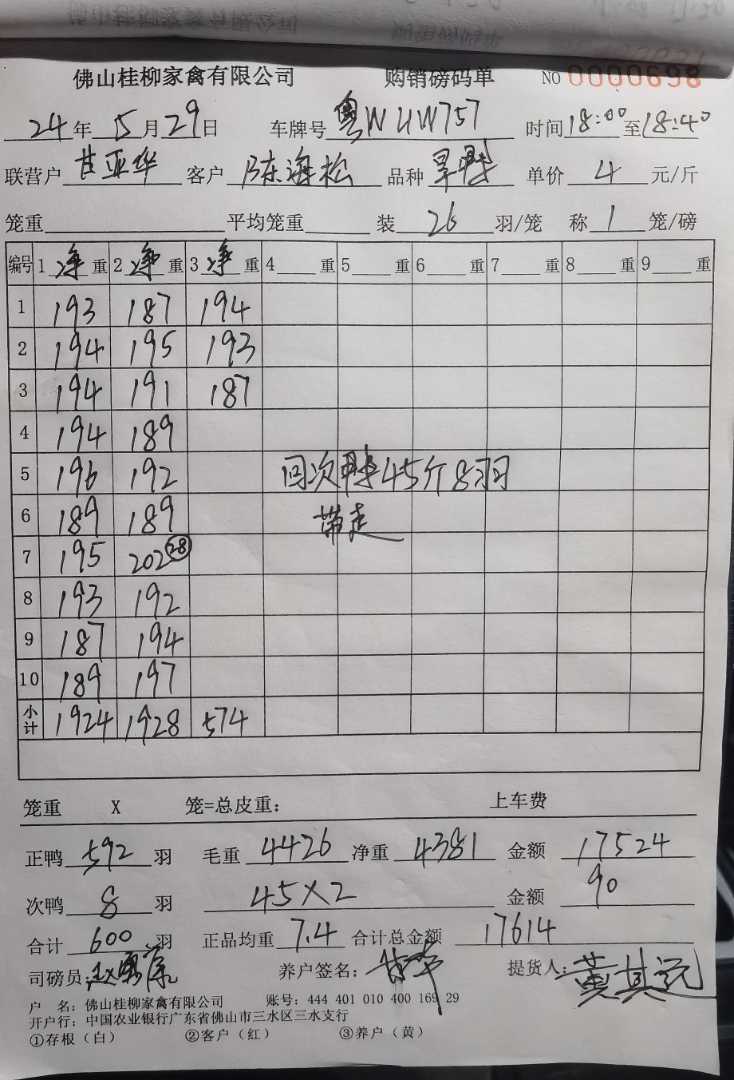 佛山桂柳家禽有限公司 购销磅码单 NO 0000698
24年5月29日 车牌号 粤WUW757 时间18:00至18:40
联营户 甘亚华 客户 陈海松 品种 单价 4 元/斤
笼重 平均笼重 装 26 羽/笼 称 1 笼/磅
编号 1 净 重 2 净 重 3 净 重 4 重 5 重 6 重 7 重 8 重 9 重
1 193 187 194
2 194 195 193
3 194 191 187
4 194 189
5 196 192 回次鸭45斤8羽
6 189 189 带走
7 195 202 28
8 193 192
9 187 194
10 189 197
小计 1924 1928 574
笼重 X 笼=总皮重: 上车费
正鸭 592 羽 毛重 4426 净重 4381 金额 17524
次鸭 8 羽 45X2 金额 90
合计 600 羽 正品均重 7.4 合计总金额 17614
司磅员: 养户签名: 甘华 提货人: 黄其远
户 名: 佛山桂柳家禽有限公司 账号: 444 401 010 400 169 29
开户行: 中国农业银行广东省佛山市三水区三水支行
①存根(白) ②客户(红) ③养户(黄)